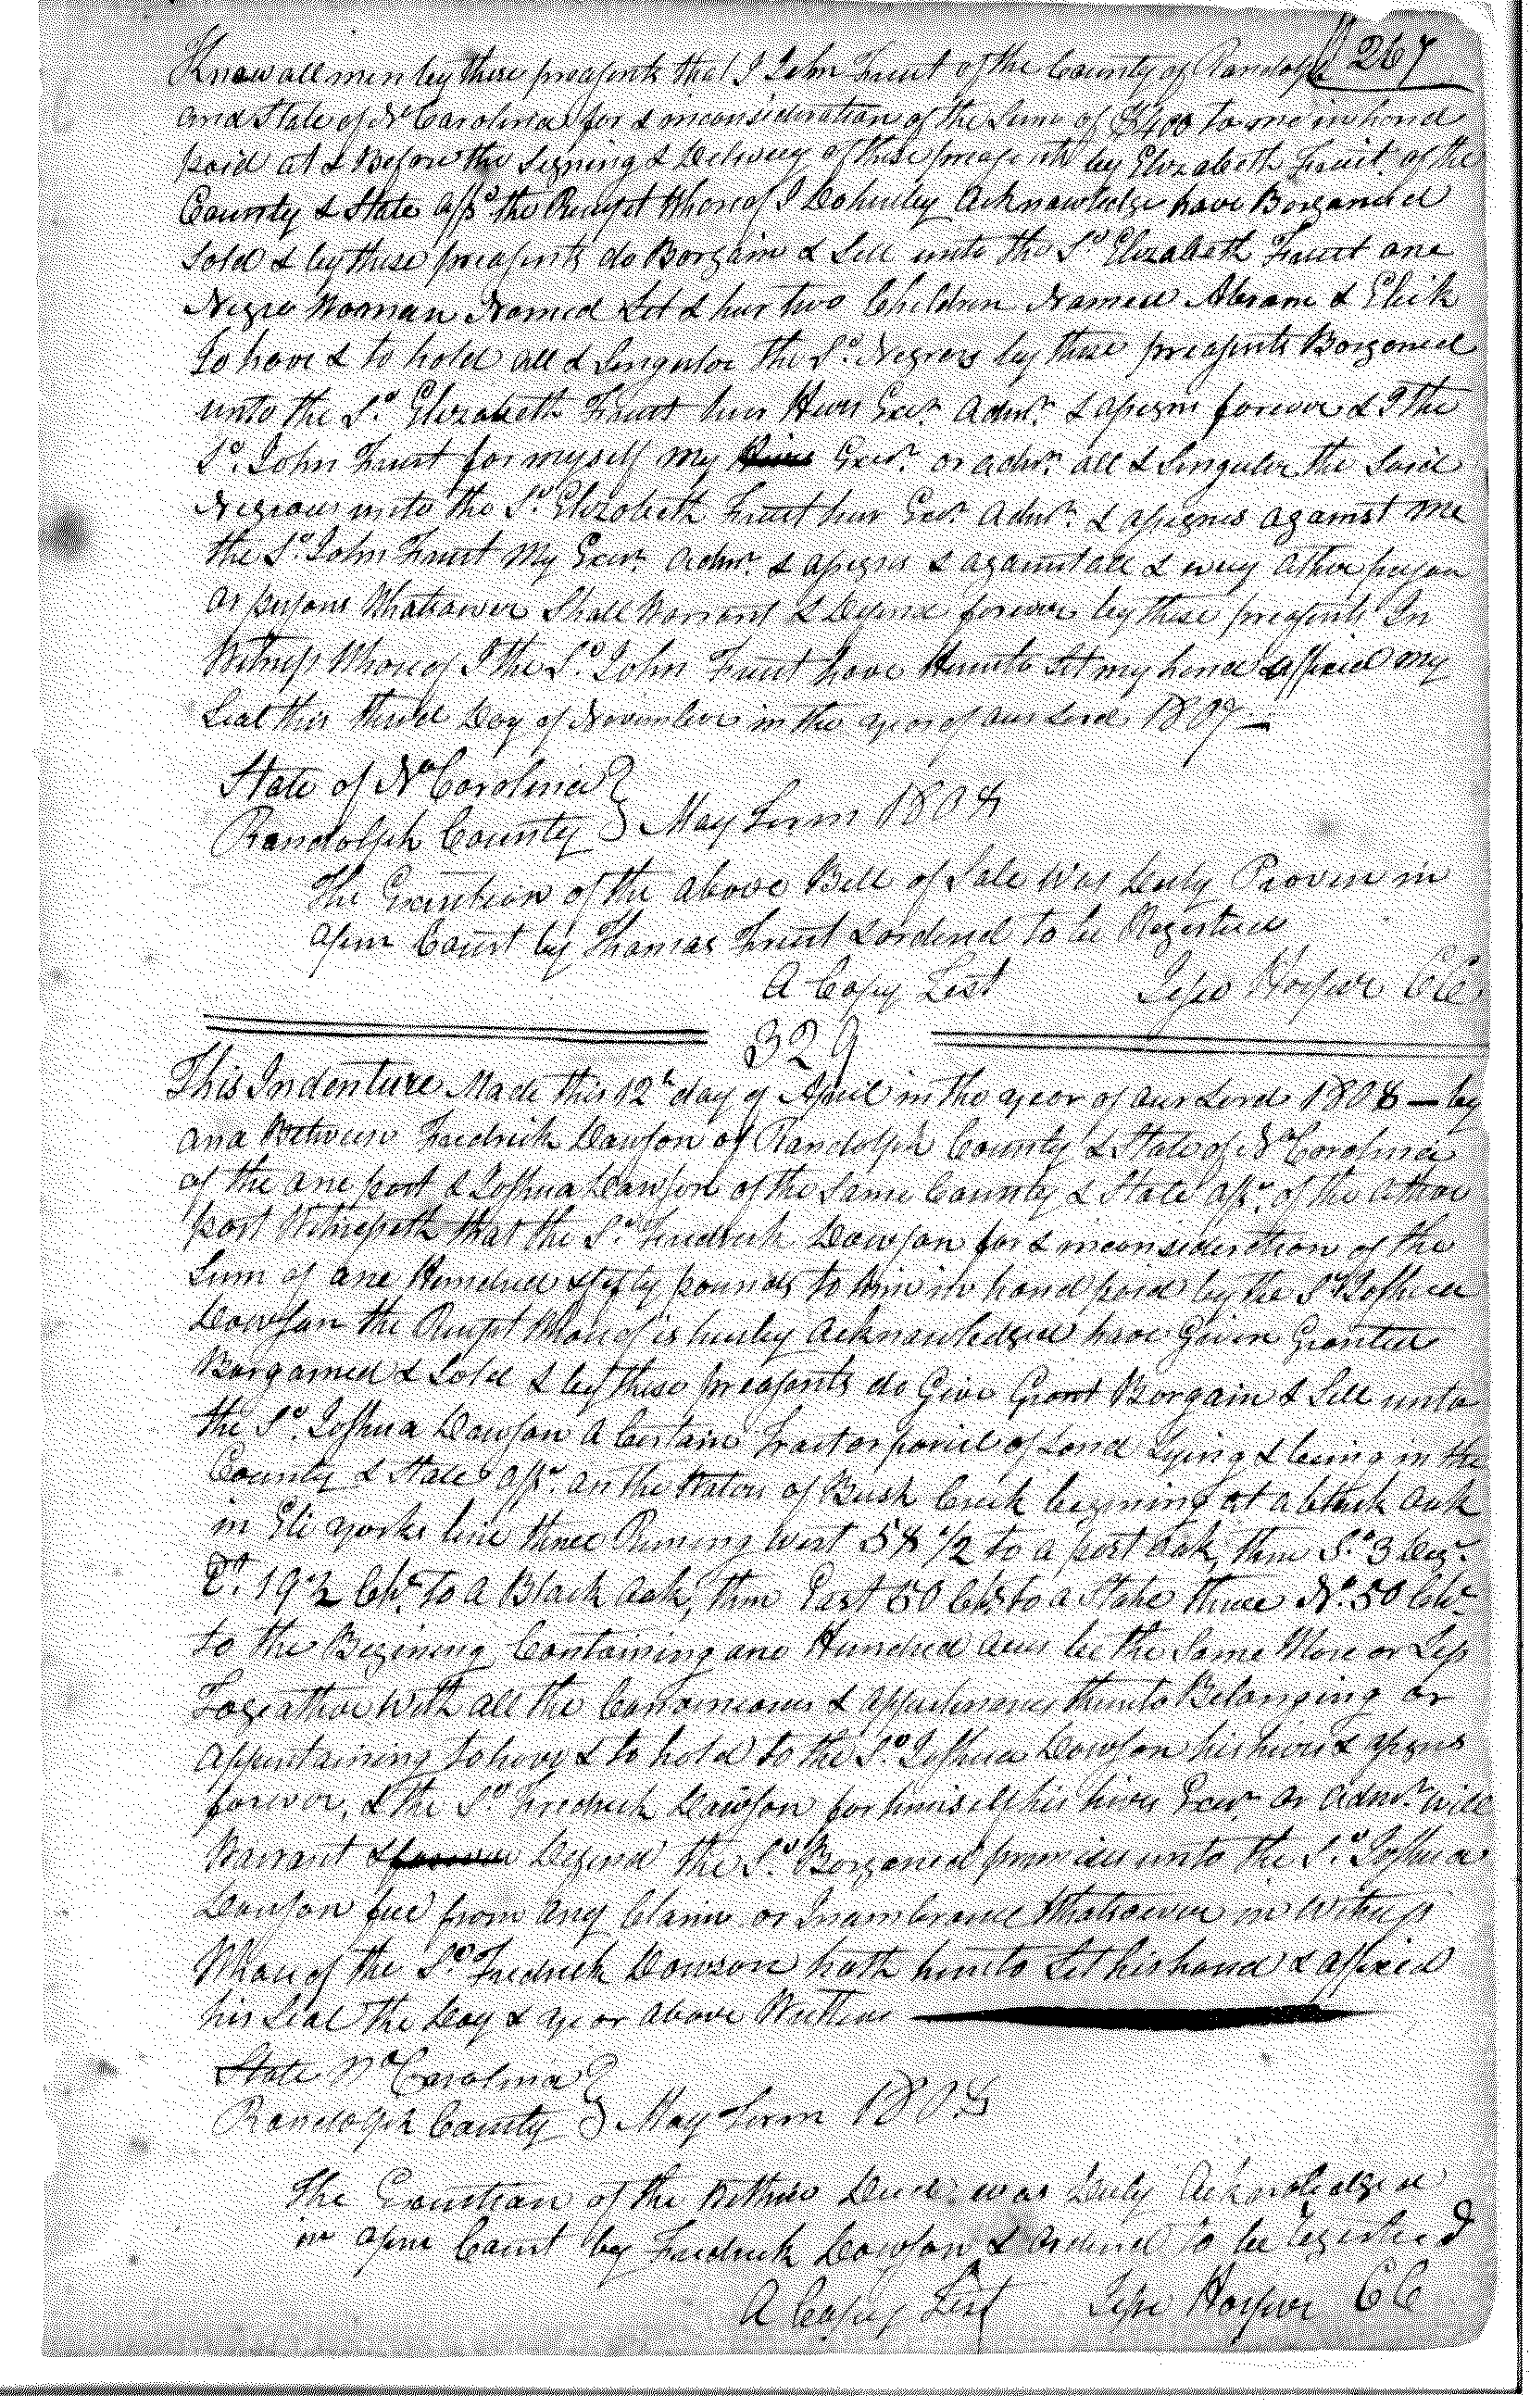 267
Know all men by these preasents that I John Fruit of the County of Randolph
and State of No Carolina for & inconsideration of the Sum of $400 to me in hand
paid at & Before the Signing & Delivery of these preasents by Elizabeth Fruit of the
County & State affsd the Receipt Whareof I Do hereby Acknowledge have Borganed
Sold & by these preasents do Borgain & Sell unto the Sd Elizabeth Fruit one
Negro Woman Named Let & hur two Children Named Abram & Elick
To have & to hold all & Singular the Sd Negroes by these preasents Borganed
unto the Sd Elizabeth Fruit hur Heirs Exer Admr & assigns forever & I the
Sd John Fruit for myself my Exer or admr all & Singuler the Said
Negroes unto the Sd Elizabeth Fruit hur Exer Admr & assignes against me
the Sd John Fruit My Exer Admr & assigns & against all & every other person
or persons Whatsoever Shall Warrant & Defend forever by these preasents In
Witness Whareof I the Sd John Fruit have Hereunto Set my hand & affixed my
Seal this third Day of November in the year of our Lord 1807
State of No Carolina
Randolph County } May Term 1808
The Execution of the above Bill of Sale Was Duly Proven in
open Court by Thomas Fruit & ordered to be Registered
A Copy Test Jesse Harper CC
329
This Indenture Made this 12th day of April in the year of our Lord 1808 — by
and Between Fredrick Dawson of Randolph County & State of No Carolina
of the one part & Joshua Dawson of the Same County & State affsd of the other
part Witnesseth that the Sd Fredrick Dawson for & inconsideration of the
Sum of one Hundred & fifty pounds to him in hand paid by the Sd Joshua
Dawson the Receipt Whareof is hereby Acknowledged have Given Granted
Borganed & Sold & by these preasents do Give Grant Borgain & Sell unto
the Sd Joshua Dawson A Certain Tract or parcel of Land Lying & being in the
County & State affsd on the Waters of Bush Creek begining at a black oak
in Eli Yorks line thence Runing West 58 1/2 to a post oak, then So 3 Deg
Et 19 1/2 Chs to a Black oak, then East 50 Chs to a Stake thence No 50 Chs
to the Begining Containing one Hundred acres be the Same More or Less
Togeather With all the & appurtenances thereunto Belonging or
appertaining to have & to hold to the Sd Joshua Dawson his heirs & assigns
forever, & the Sd Fredrick Dawson for himself his heirs Exer or admr will
Warrant & Defend the Sd Borganed premises unto the Sd Joshua
Dawson free from any Claim or Incumbrance Whatsoever in witness
Whareof the Sd Fredrick Dawson hath hereunto Set his hand & affixed
his Seal the Day & year above Written
State No Carolina
Randolph County } May Term 1808
The Execution of the Within Deed was Duly Acknowledged
in open Court by Fredrick Dawson & ordered to be registered
A Copy Test Jesse Harper CC